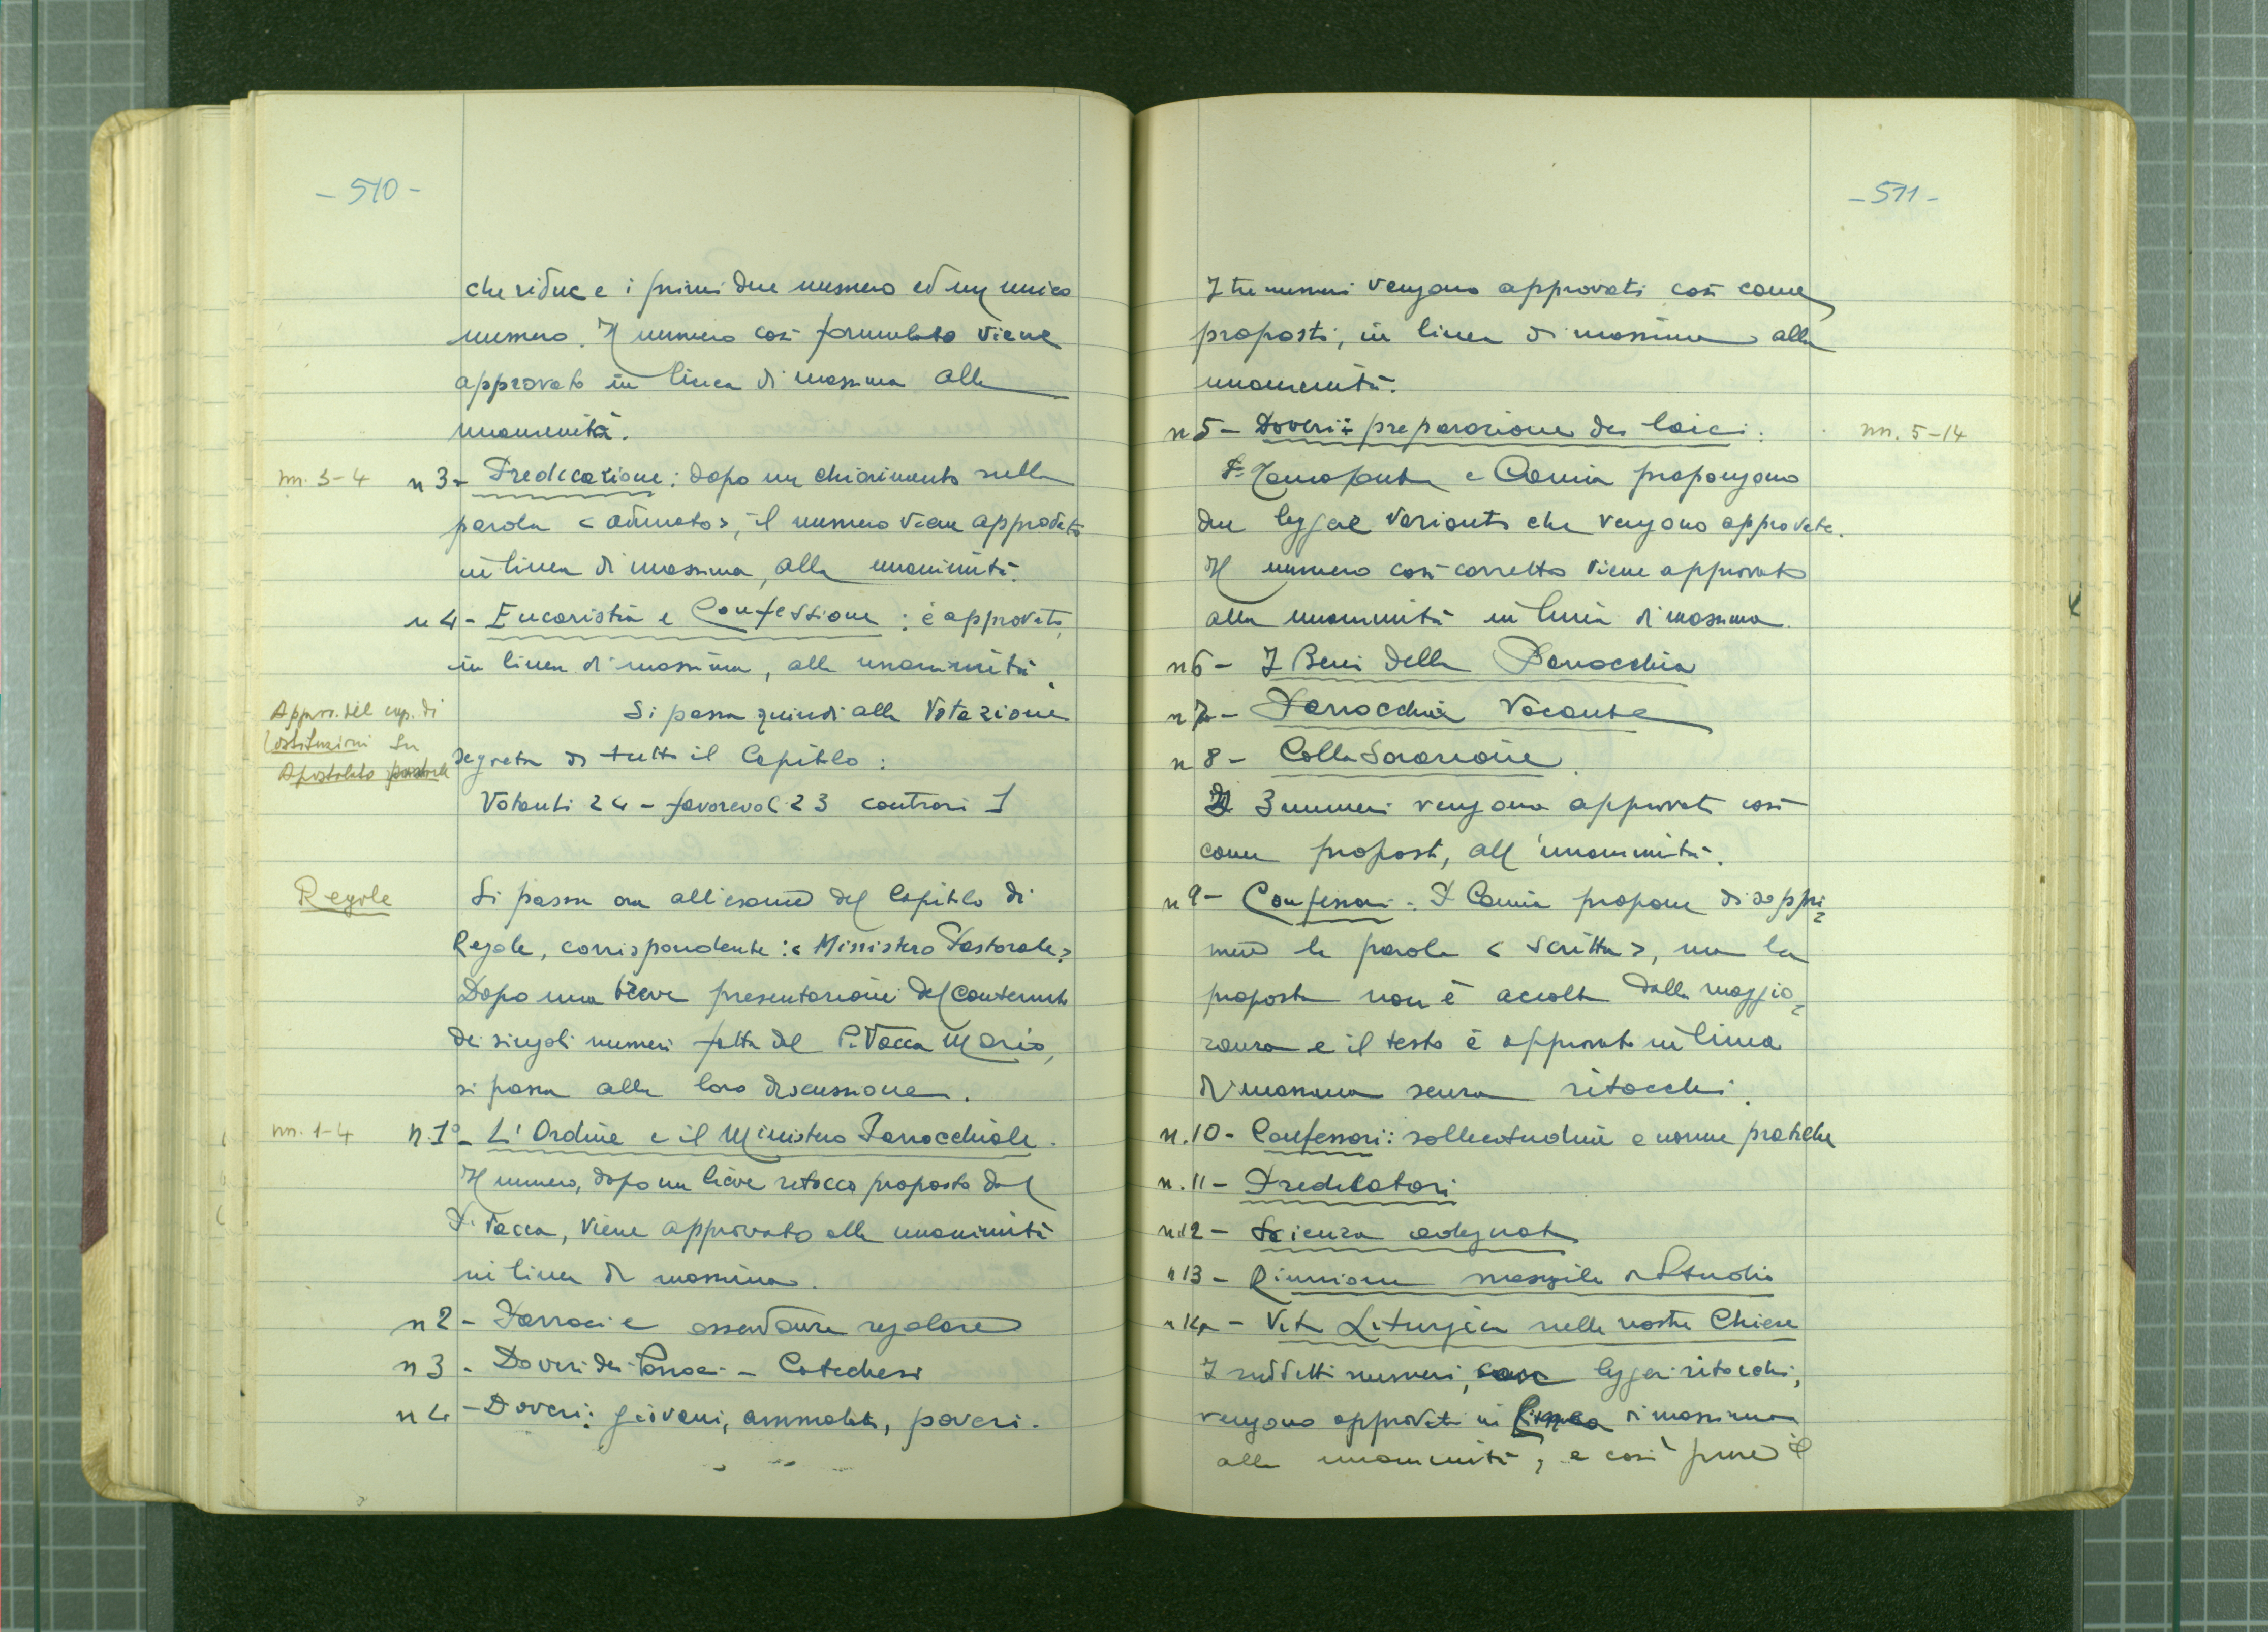 - 510 -
che riduce i primi due numero ed un unico
numero. Il numero così formulato viene
approvato in linea di massima alla
unanimità.
nn. 3-4
n 3 - Predicazione: dopo un chiarimento sulla
parola <adunato>, il numero viene approvato
in linea di massima, alla unanimità.
n 4 - Eucaristia e Confessione: è approvato,
in linea di massima, alla unanimità.
Approv. del cap. di
Costituzioni su
Apostolato pastorale
Si passa quindi alla Votazione
segreta di tutto il Capitolo:
Votanti 24 - favorevoli 23 contrari 1
Regole
Si passa ora all'esame del Capitolo di
Regole, corrispondente: <Ministero Pastorale>
Dopo una breve presentazione del contenuto
dei singoli numeri fatta dal P. Vacca Mario,
si passa alla loro discussione.
nn. 1-4
n. 1° - L'Ordine e il Ministero Parrocchiale.
Il numero, dopo un lieve ritocco proposto dal
P. Vacca, viene approvato alla unanimità
in linea di massima.
n 2 - Parroci e osservanza regolare
n 3 - Doveri dei Parroci - Catechesi
n 4 - Doveri: giovani, ammalati, poveri.
- 511 -
I tre numeri vengono approvati così come
proposti, in linea di massima alla
unanimità.
n 5 - Doveri: preparazione dei laici:
nn. 5-14
P. e propongono
due leggere varianti che vengono approvate.
Il numero così corretto viene approvato
alla unanimità in linea di massima.
n 6 - I Beni della Parrocchia
n 7 - Parrocchia Vacante
n 8 - Collaborazione.
I 3 numeri vengono approvati così
come proposti, all'unanimità.
n 9 - Confessori - P. propone di soppri=
mere la parola <scritta>, ma la
proposta non è accolta dalla maggio=
ranza e il testo è approvato in linea
di massima senza ritocchi.
n. 10 - Confessori: sollecitudine e norme pratiche
n. 11 - Predicatori
n 12 - Scienza adeguata
n 13 - Riunione mensile di Studio
n 14 - Vita Liturgica nelle nostre Chiese
I suddetti numeri, leggeri ritocchi,
vengono approvati in linea di massima
alla unanimità, e così pure il